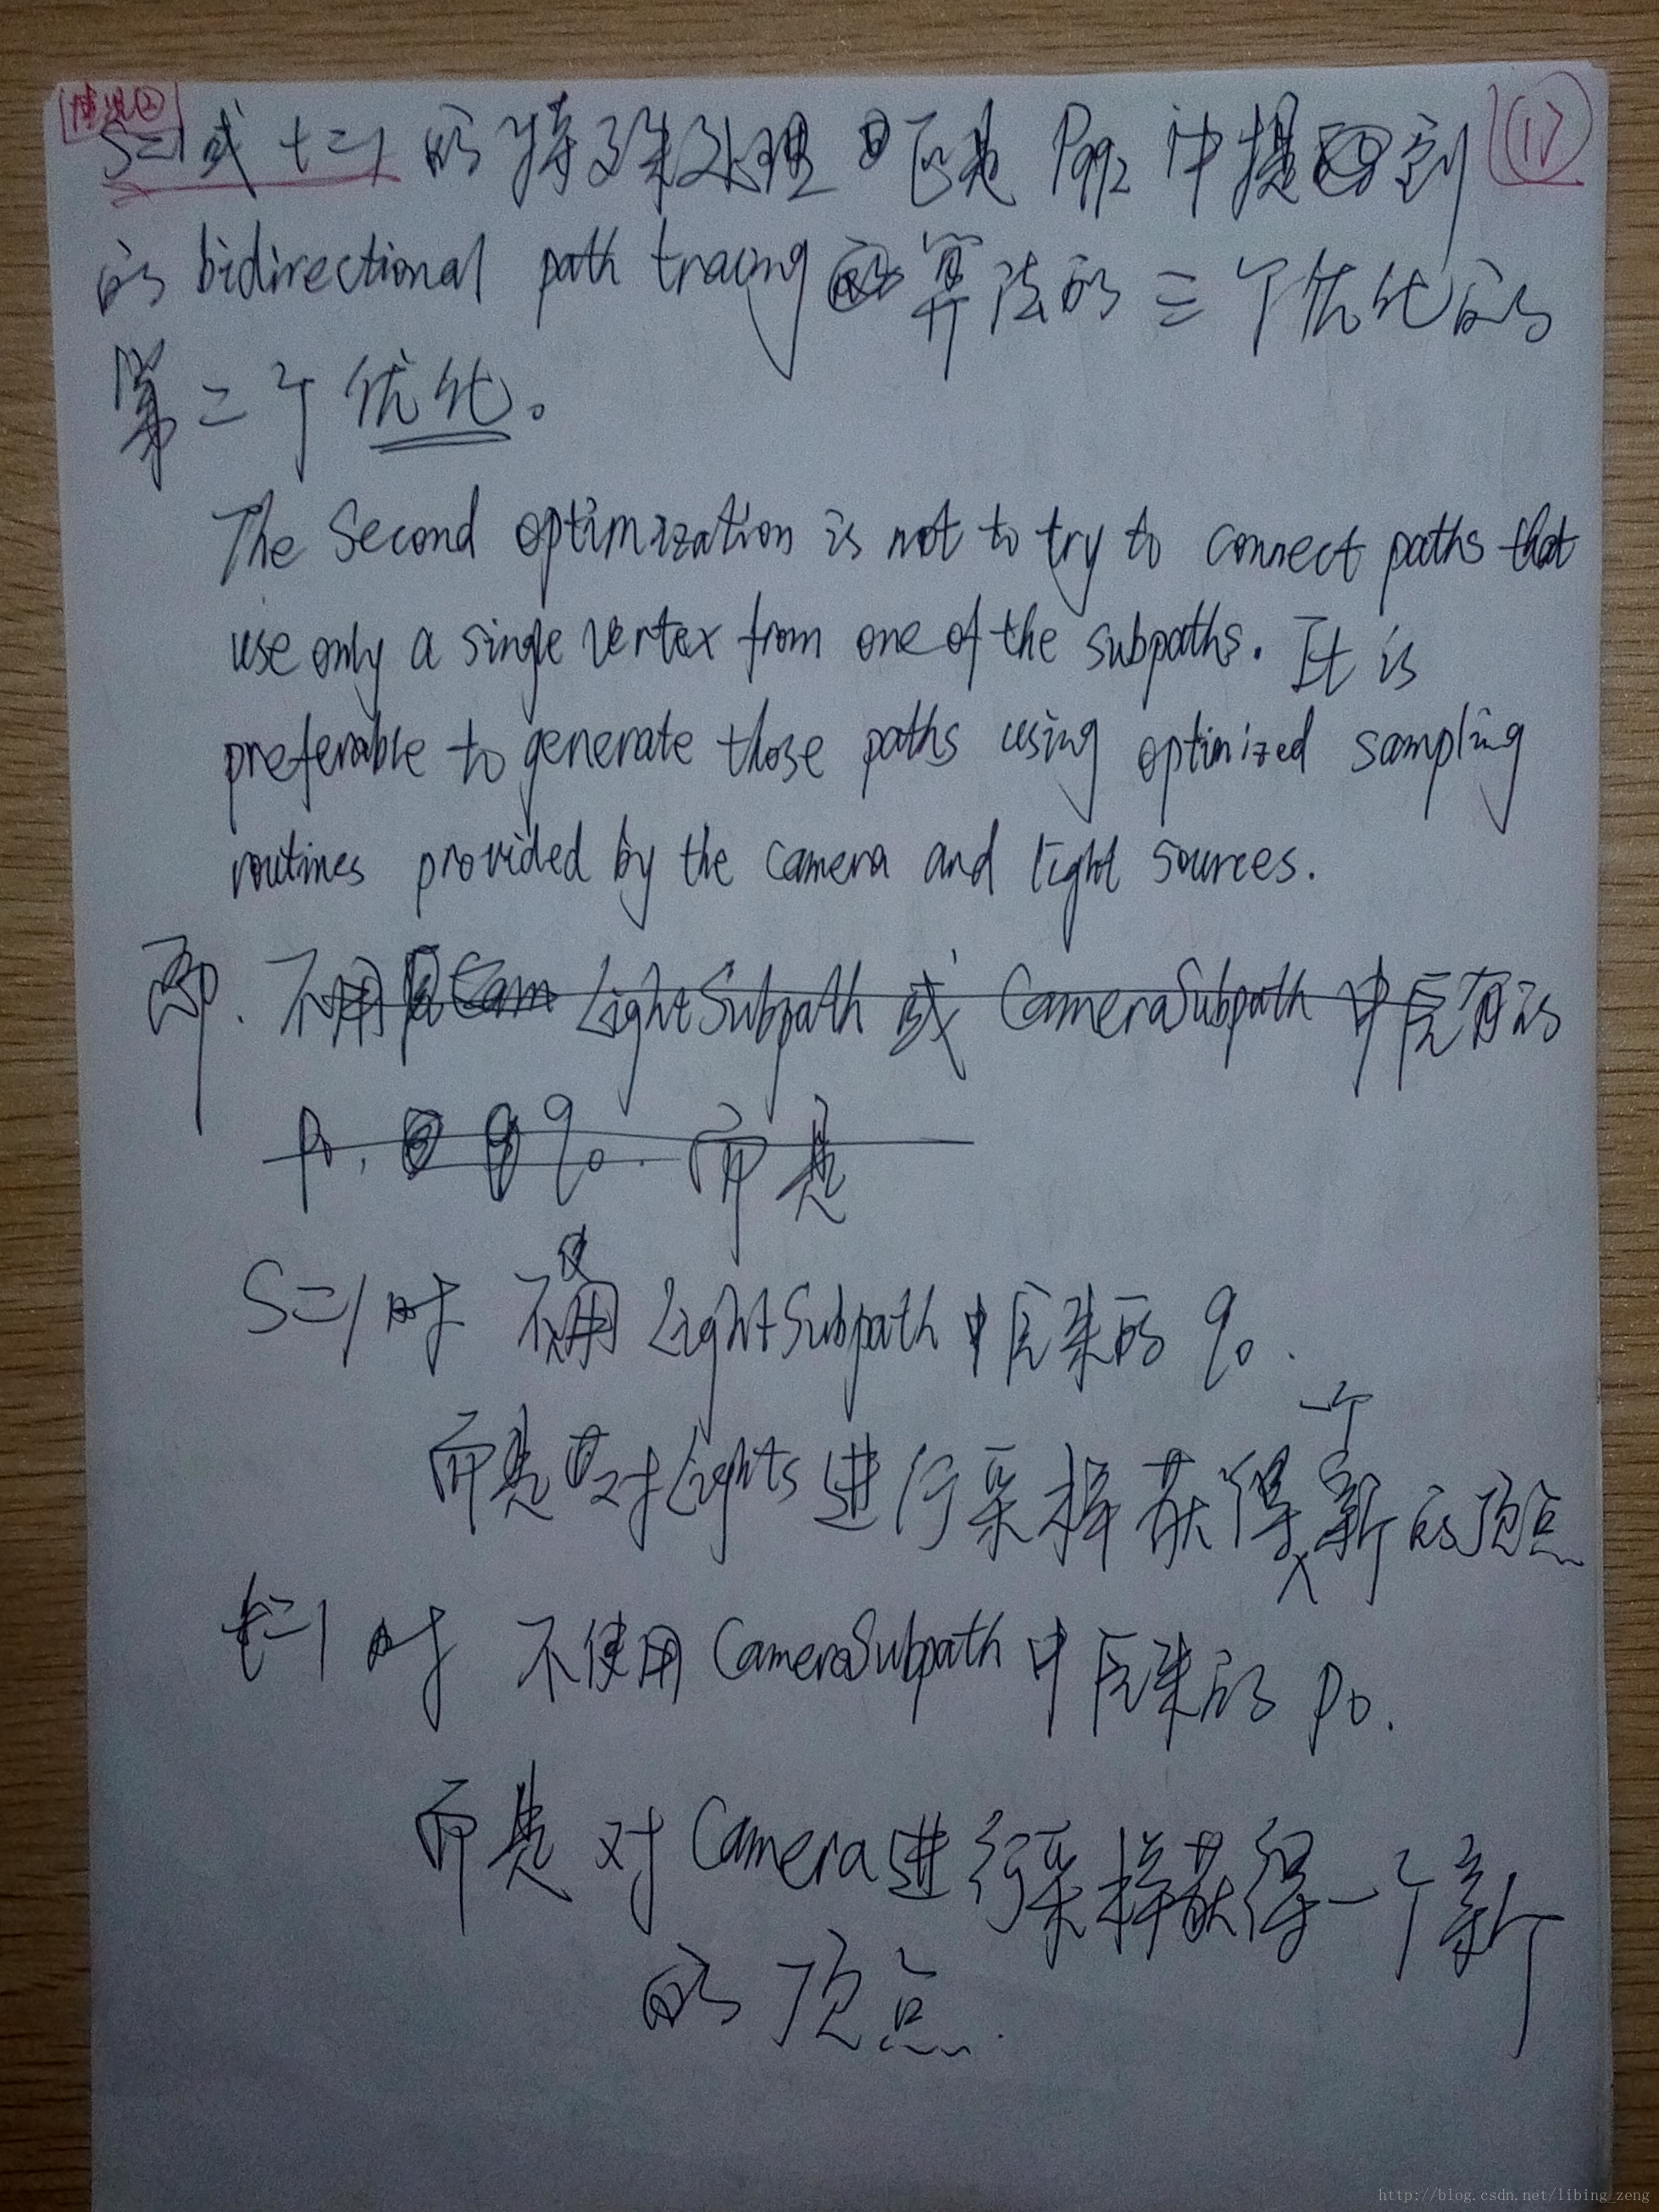 情况②
⑰
S=1或t=1的特殊处理正是P992中提到
的bidirectional path tracing算法的三个优化的
第二个优化。
The Second optimization is not to try to connect paths that
use only a single vertex from one of the subpaths. It is
preferable to generate those paths using optimized sampling
routines provided by the camera and light sources.
即. 不用 LightSubpath 或 CameraSubpath 中原有的
p0, q0. 而是
S=1时 不使用LightSubpath中原来的 q0.
而是对Lights进行采样获得一个新的顶点
t=1时 不使用CameraSubpath中原来的 p0.
而是对Camera进行采样获得一个新
的顶点.
http://blog.csdn.net/libing_zeng